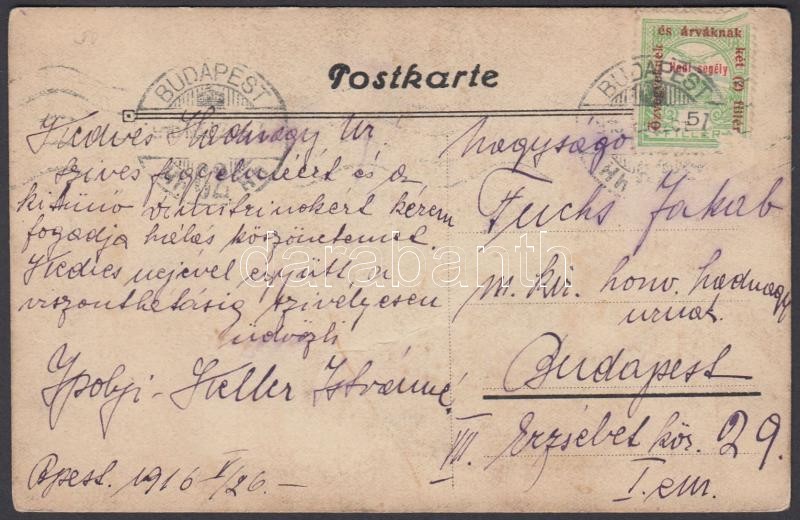 Postkarte
BUDAPEST
BUDAPEST
Özvegyeknek
és árváknak
két (2) fillér
Hadi segély
51
Kedves Hadnagy Úr
szives figyelméért és a
kitünő kérem
fogadja hálás köszönetemet.
Kedves nejével együtt a
viszontlátásig szivélyesen
üdvözli
Ipolyi-Keller Istvánné
Bpest. 1916 V/26.–
Nagyságo
Fuchs Jakab
m. kir. honv. hadnagy
urnak
Budapest
VII. Erzsébet kör. 29.
I. em.
darabanth